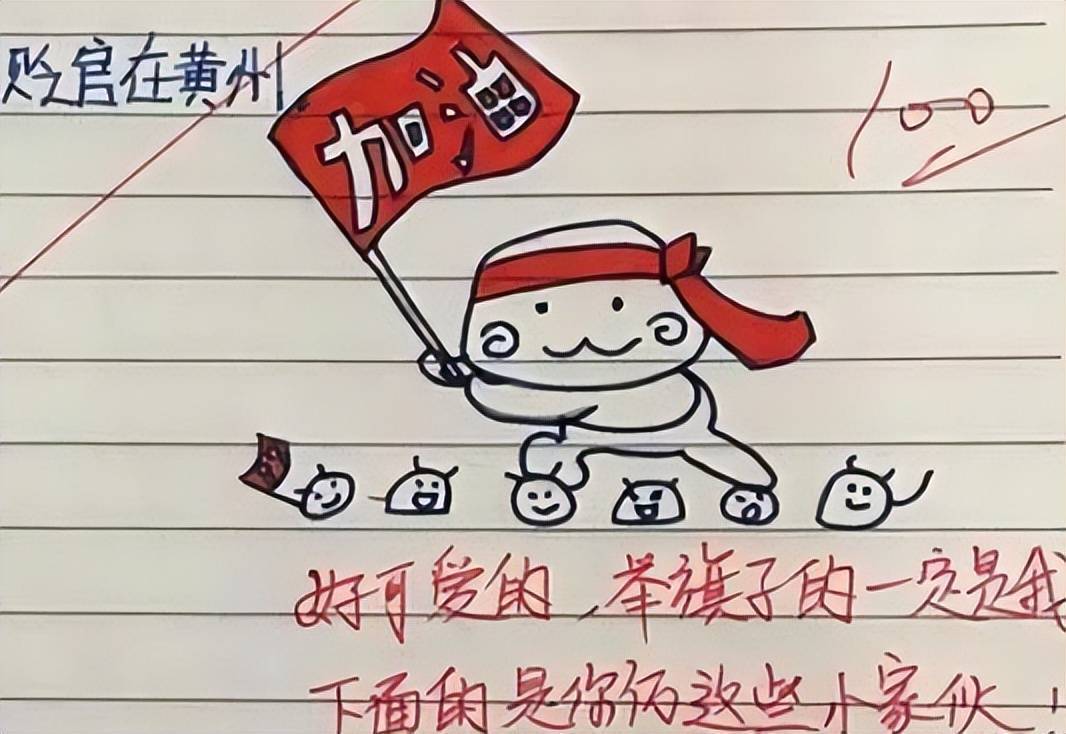 贬官在黄州
加油
100
好可爱的，举旗子的一定是我
下面的是你们这些小家伙！